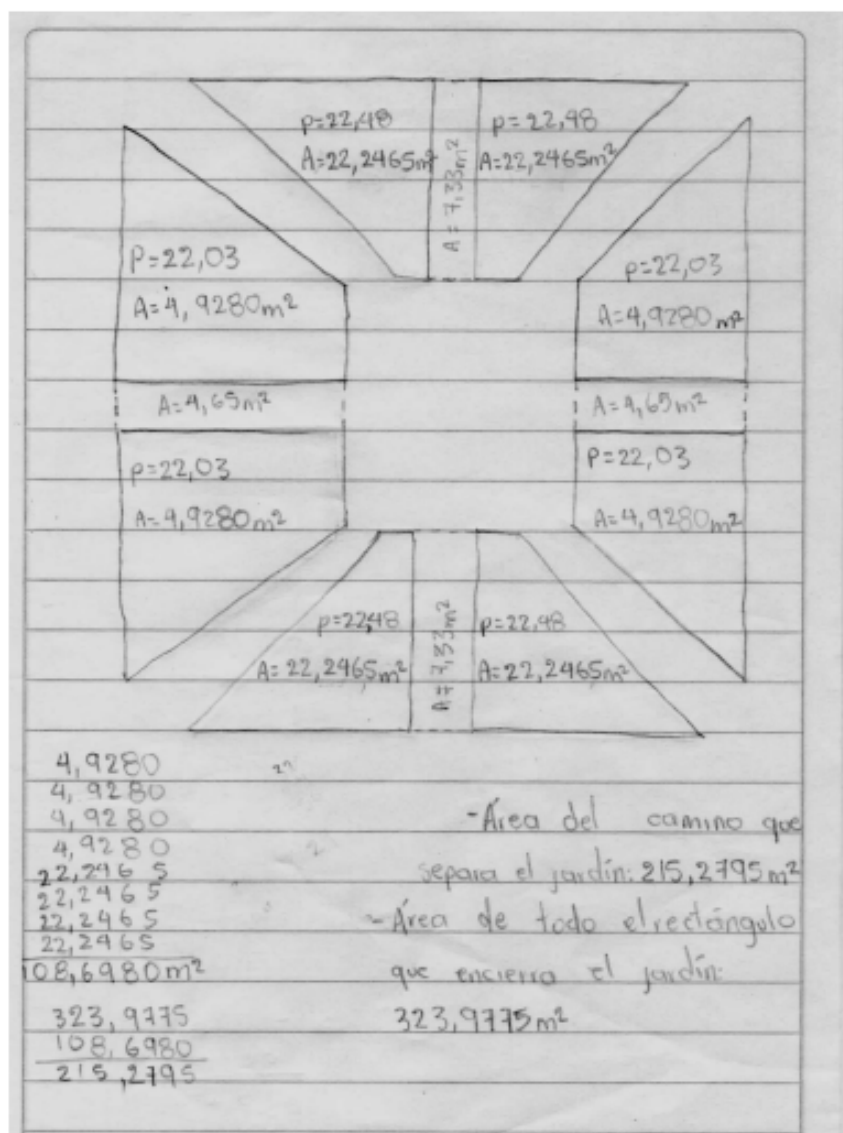 p=22,48 p=22,48
A=22,2465m² A=22,2465m²
A=7,33m²
P=22,03 p=22,03
A=4,9280m² A=4,9280m²
A=4,65m² A=4,65m²
p=22,03 p=22,03
A=4,9280m² A=4,9280m²
p=22,48 p=22,48
A=22,2465m² A=22,2465m²
A=7,33m²
4,9280
4,9280
4,9280
4,9280
22,2465
22,2465
22,2465
22,2465
108,6980m²
323,9775
108,6980
215,2795
-Área del camino que
separa el jardín: 215,2795m²
-Área de todo el rectángulo
que encierra el jardín:
323,9775m²